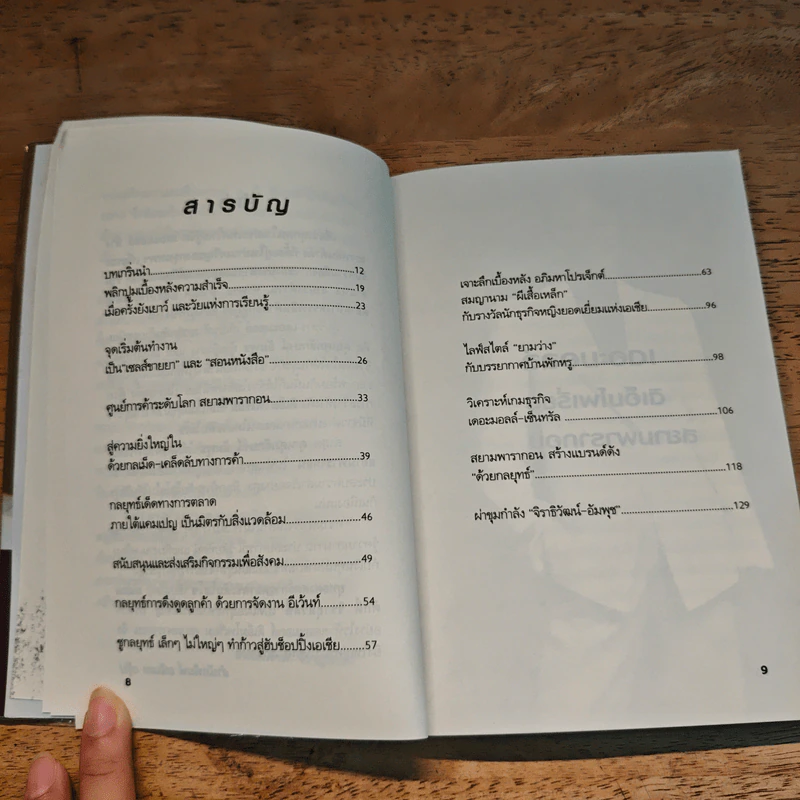 สารบัญ
บทเกริ่นนำ...........................................................12
พลิกปูมเบื้องหลังความสำเร็จ........................................19
เมื่อครั้งยังเยาว์ และวัยแห่งการเรียนรู้..........................23
จุดเริ่มต้นทำงาน
เป็น"เซลส์ขายยา" และ "สอนหนังสือ"..........................26
ศูนย์การค้าระดับโลก สยามพารากอน..........................33
สู่ความยิ่งใหญ่ใน
ด้วยกลเม็ด-เคล็ดลับทางการค้า..................................39
กลยุทธ์เด็ดทางการตลาด
ภายใต้แคมเปญ เป็นมิตรกับสิ่งแวดล้อม......................46
สนับสนุนและส่งเสริมกิจกรรมเพื่อสังคม......................49
กลยุทธ์การดึงดูดลูกค้า ด้วยการจัดงาน อีเว้นท์............54
ชูกลยุทธ์ เล็กๆ ไม่ใหญ่ๆ ทำก้าวสู่ฮับช็อปปิ้งเอเชีย.......57
8
เจาะลึกเบื้องหลัง อภิมหาโปรเจ็กต์..........................63
สมญานาม "ผีเสื้อเหล็ก"
กับรางวัลนักธุรกิจหญิงยอดเยี่ยมแห่งเอเชีย...............96
ไลฟ์สไตล์ "ยามว่าง"
กับบรรยากาศบ้านพักหรู......................................98
วิเคราะห์เกมธุรกิจ
เดอะมอลล์-เซ็นทรัล ..........................................106
สยามพารากอน สร้างแบรนด์ดัง
"ด้วยกลยุทธ์"...................................................118
ผ่าขุมกำลัง "จิราธิวัฒน์-อัมพุช"..............................129
9